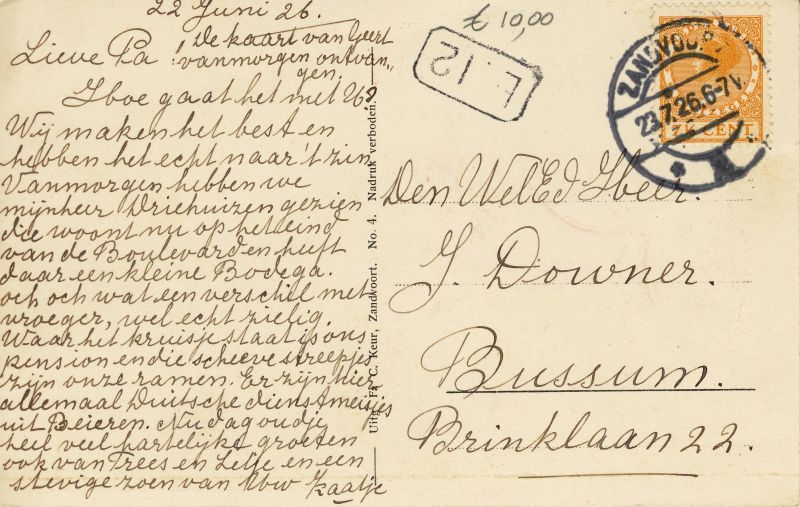 22 Juni 26.
Lieve Pa! De kaart van Geert
vanmorgen ontvan-
gen.
Hoe gaat het met U?
Wij maken het best en
hebben het echt naar 't zin
Vanmorgen hebben we
mijnheer Driehuizen gezien
die woont nu op het eind
van de Boulevard en heeft
daar een kleine Bodega.
och och wat een verschil met
vroeger, wel echt zielig.
Waar het kruisje staat is ons
pension en die scheeve streepjes
zijn onze ramen. Er zijn hier
allemaal Duitsche dienstmeisjes
uit Beieren. Nu dag oudje
heel veel hartelijke groeten
ook van Trees en en een
stevige zoen van Uw Kaatje
Uitg. Fa C. Keur, Zandvoort. No. 4. Nadruk verboden.
£ 10,00
F 12
ZANDVOORT
23.7.26.6-7V.
7½ CENT
Den WelEd Heer.
J. Downer.
Bussum.
Brinklaan 22.